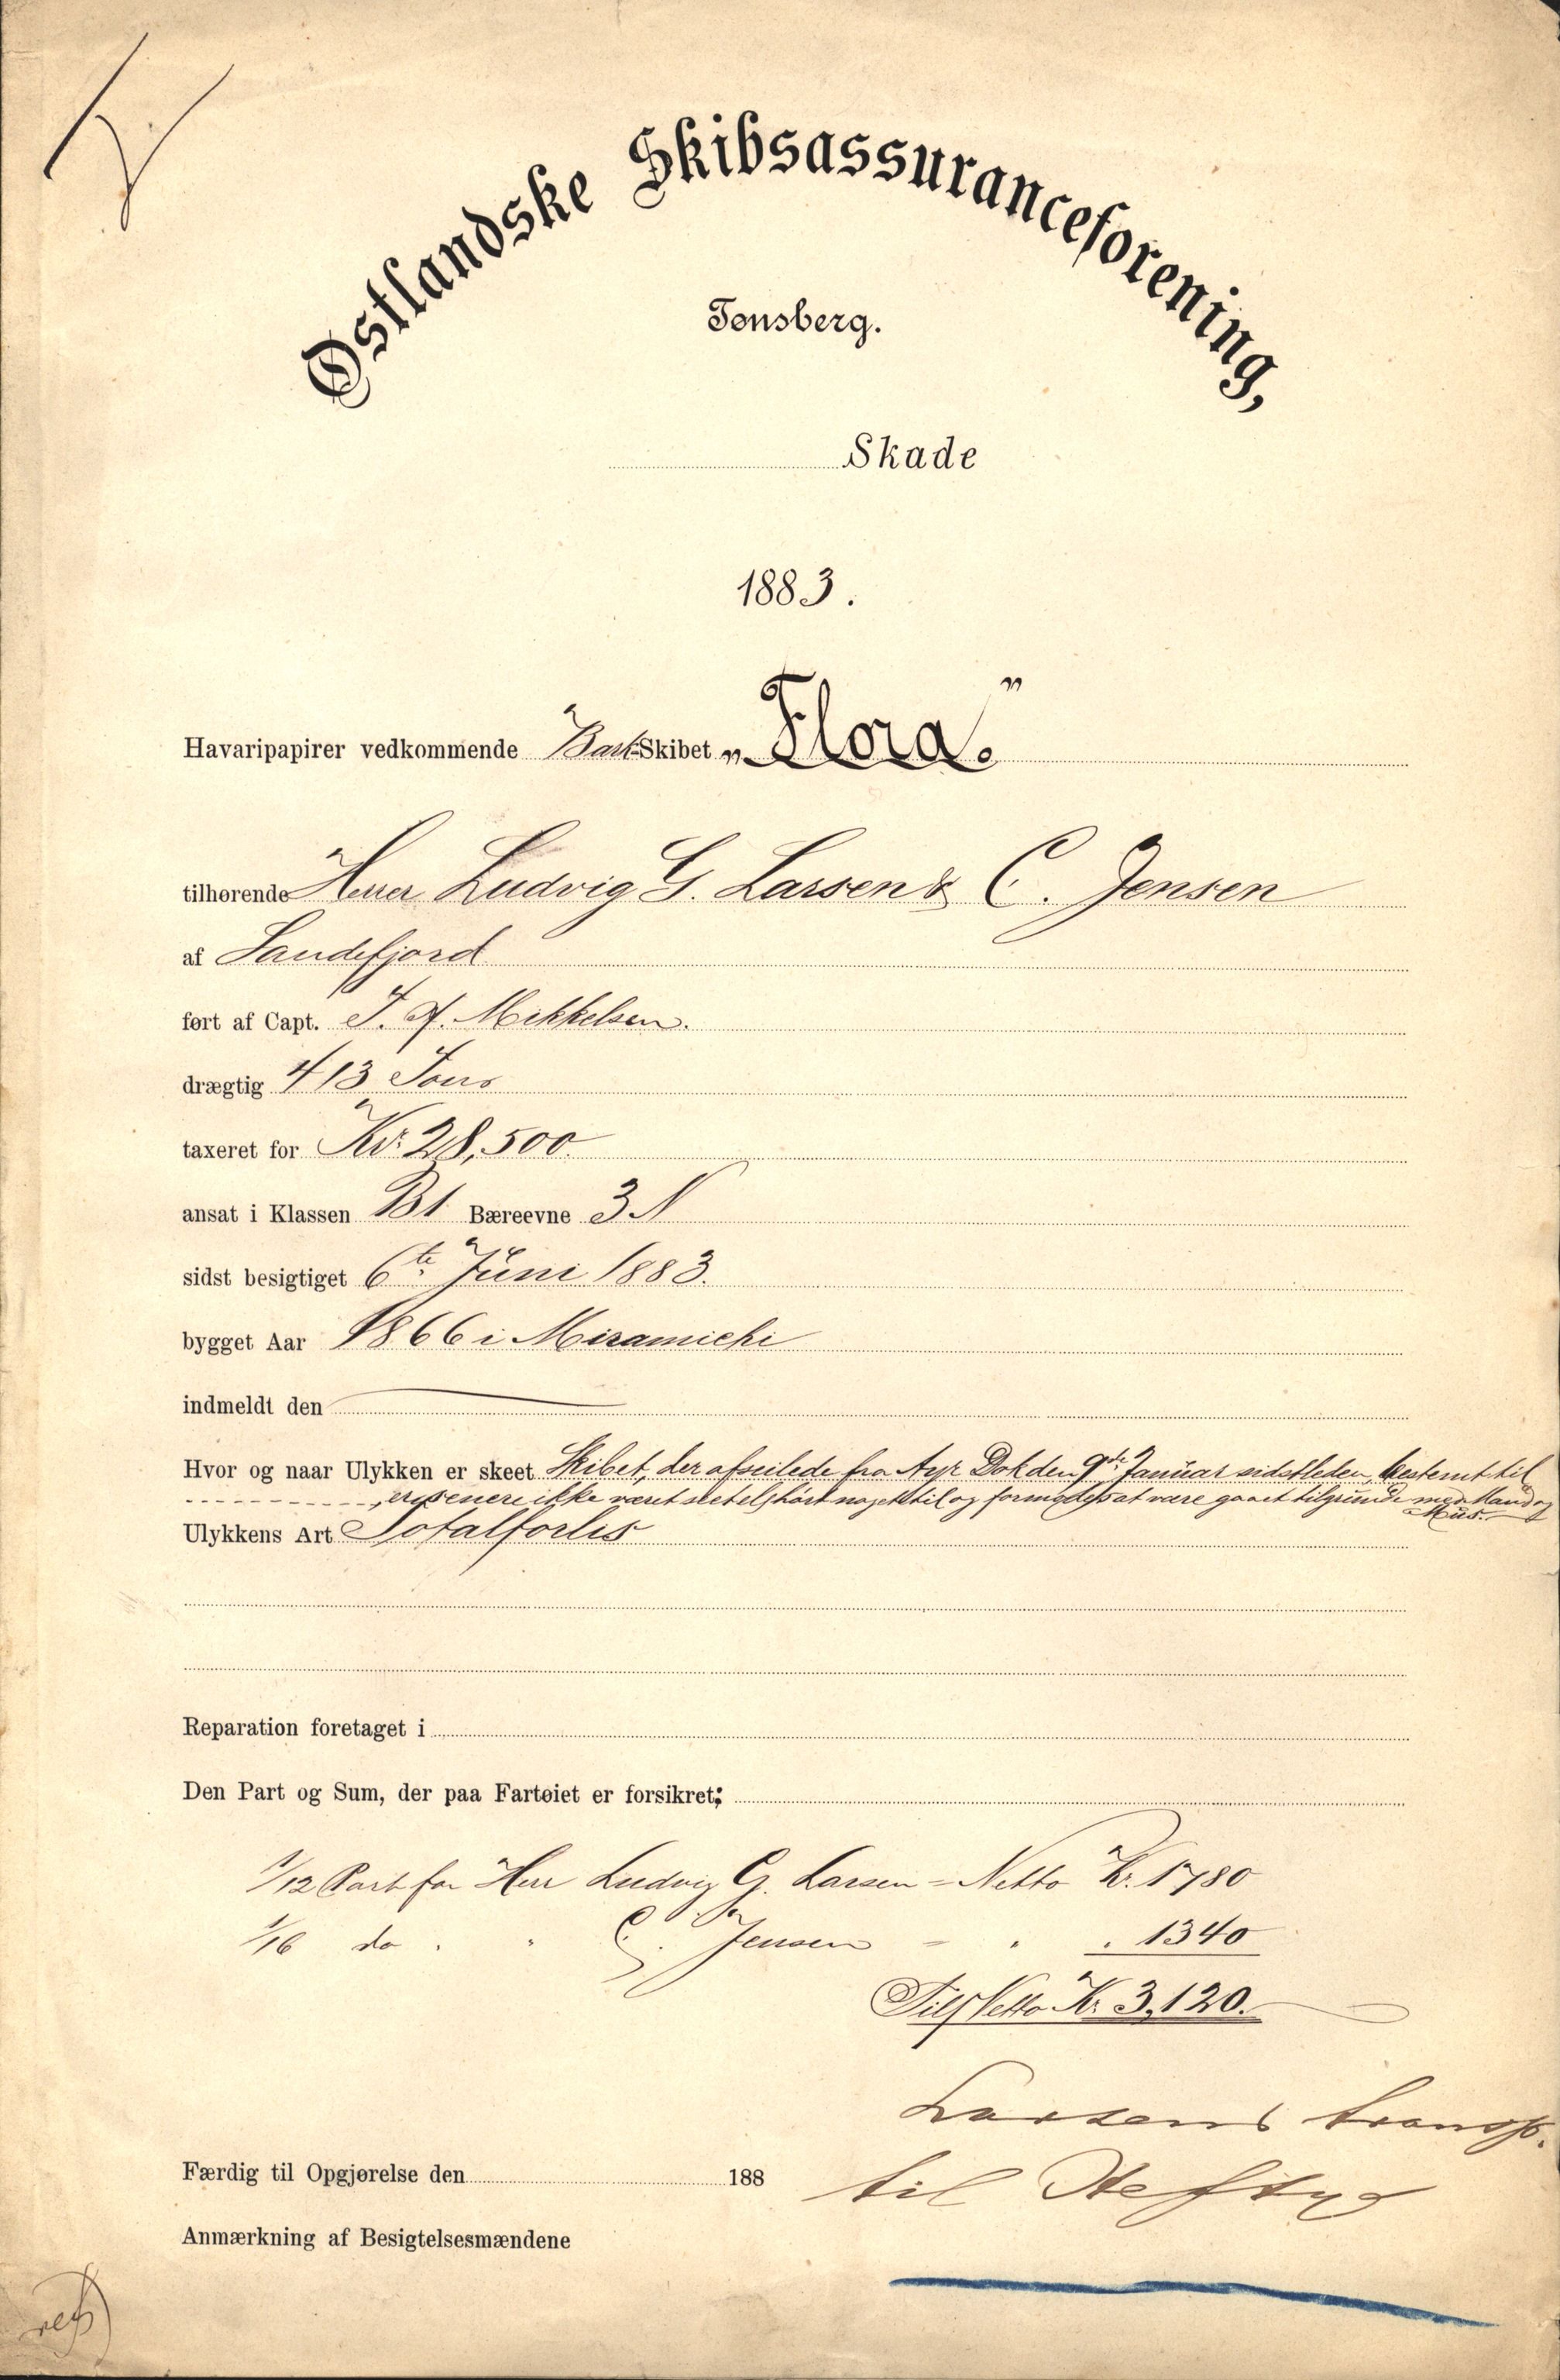 Østlandske Skibsassuranceforening,
Tønsberg.
Skade
1883.
Havaripapirer vedkommende Bark-Skibet „Flora."
tilhørende Herrer Ludvig G. Larsen & C. Jensen
af Sandefjord
ført af Capt. J. A. Mikkelsen.
drægtig 413 Tons
taxeret for Kr. 28,500.
ansat i Klassen B1 Bæreevne 3 N
sidst besigtiget 6te Juni 1883.
bygget Aar 1866 i Miramichi
indmeldt den
Hvor og naar Ulykken er skeet Skibet, der afseilede fra Ayr Dok den 9de Januar sidstleden, bestemt til
, er senere ikke været seet el. hørt noget til og formodes at være gaaet tilgrunde med Mand og
Mus.
Ulykkens Art Totalforlis
Reparation foretaget i
Den Part og Sum, der paa Fartøiet er forsikret:
1/12 Part for Herr Ludvig G. Larsen = Netto Kr. 1780
1/16 do " " C. Jensen = " " 1340
Tils. Netto Kr. 3,120.
Larsens transp.
til Heftye
Færdig til Opgjørelse den 188
Anmærkning af Besigtelsesmændene